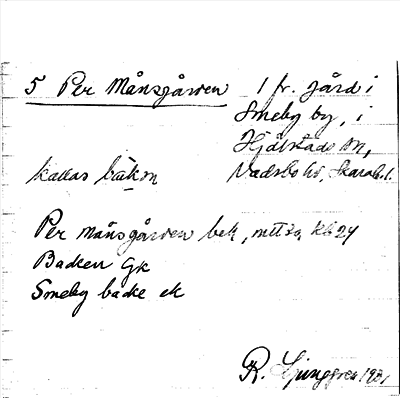 5 Per Månsgården 1 fr. gård i
Smeby by, i
Hjälstads sn,
kallas bäkən Vadsbo hd, Skarab. l.
Per Månsgården bek,
Backen gk
Smeby backe ek
R. Ljunggren 1931